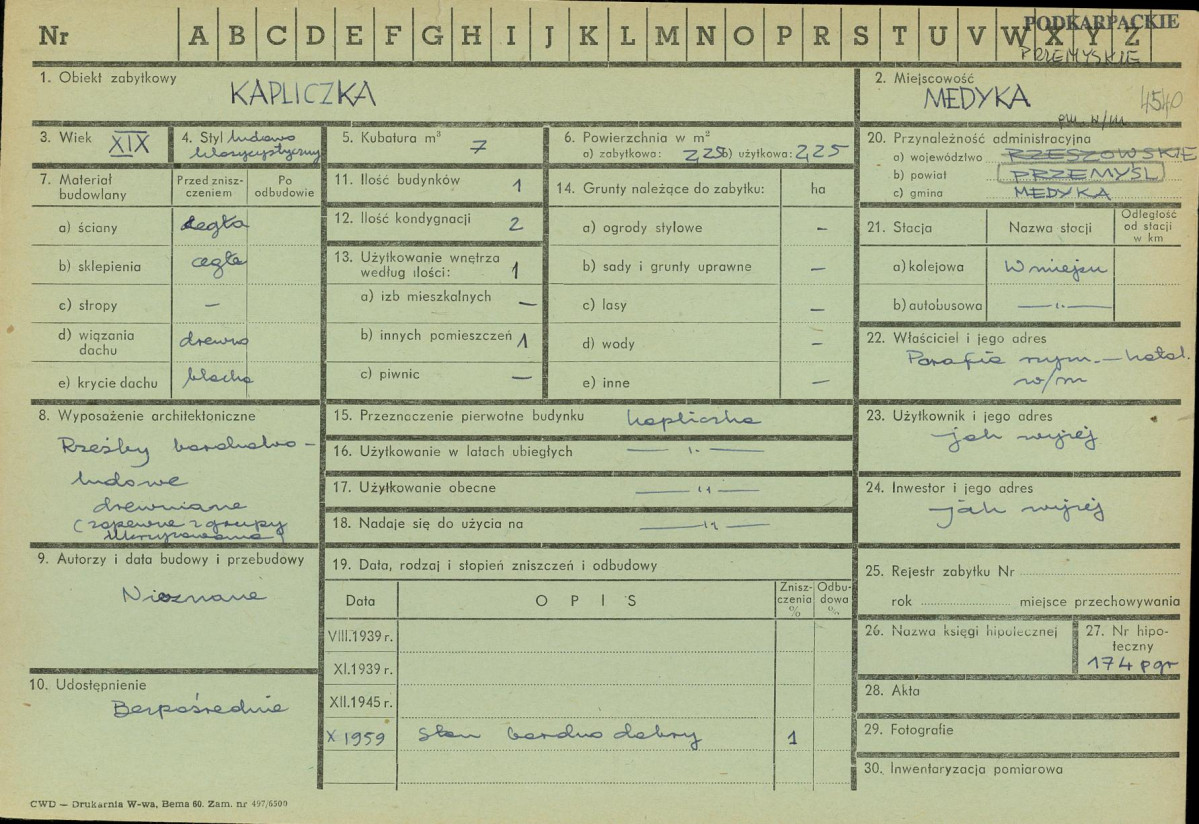 Nr A B C D E F G H I J K L M N O P R S T U V W X Y Z
PODKARPACKIE
PRZEMYSKIE
1. Obiekt zabytkowy
KAPLICZKA
2. Miejscowość
MEDYKA
4540
gm. w/m
3. Wiek XIX
4. Styl ludowo
klasycystyczny
5. Kubatura m³ 7
6. Powierzchnia w m²
a) zabytkowa: 2,25 b) użytkowa: 2,25
7. Materiał budowlany
Przed zniszczeniem
Po odbudowie
a) ściany cegła
b) sklepienia cegła
c) stropy –
d) wiązania dachu drewno
e) krycie dachu blacha
8. Wyposażenie architektoniczne
Rzeźby barokowo –
ludowe
drewniane
(zapewne z grupy
Ukrzyżowania)
9. Autorzy i data budowy i przebudowy
Nieznane
10. Udostępnienie
Bezpośrednie
11. Ilość budynków 1
12. Ilość kondygnacji 2
13. Użytkowanie wnętrza
według ilości: 1
a) izb mieszkalnych –
b) innych pomieszczeń 1
c) piwnic –
14. Grunty należące do zabytku: ha
a) ogrody stylowe –
b) sady i grunty uprawne –
c) lasy –
d) wody –
e) inne –
15. Przeznaczenie pierwotne budynku kapliczka
16. Użytkowanie w latach ubiegłych — „ —
17. Użytkowanie obecne — „ —
18. Nadaje się do użycia na — „ —
19. Data, rodzaj i stopień zniszczeń i odbudowy
Data OPIS Zniszczenia % Odbudowa %
VIII.1939 r.
XI.1939 r.
XII.1945 r.
X 1959 Stan bardzo dobry 1
20. Przynależność administracyjna
a) województwo RZESZOWSKIE
b) powiat PRZEMYŚL
c) gmina MEDYKA
21. Stacja Nazwa stacji Odległość od stacji w km
a) kolejowa W miejscu
b) autobusowa — „ —
22. Właściciel i jego adres
Parafia rzym.–katol.
w/m
23. Użytkownik i jego adres
jak wyżej
24. Inwestor i jego adres
jak wyżej
25. Rejestr zabytku Nr
rok miejsce przechowywania
26. Nazwa księgi hipotecznej
27. Nr hipoteczny
174 pgr
28. Akta
29. Fotografie
30. Inwentaryzacja pomiarowa
CWD — Drukarnia W-wa, Bema 60. Zam. nr 497/6500